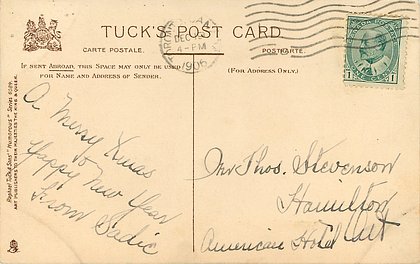 TUCK'S POST CARD.
CARTE POSTALE.
POSTKARTE.
IF SENT ABROAD, THIS SPACE MAY ONLY BE USED
FOR NAME AND ADDRESS OF SENDER.
(FOR ADDRESS ONLY.)
DEC
4-PM
1906
1 1
A Merry Xmas
&
Happy New Year
From Sadie
Mr Thos. Stevenson
Hamilton
American Hotel Ont
Raphael Tuck & Sons' "Humorous" Series
ART PUBLISHERS TO THEIR MAJESTIES THE KING & QUEEN.